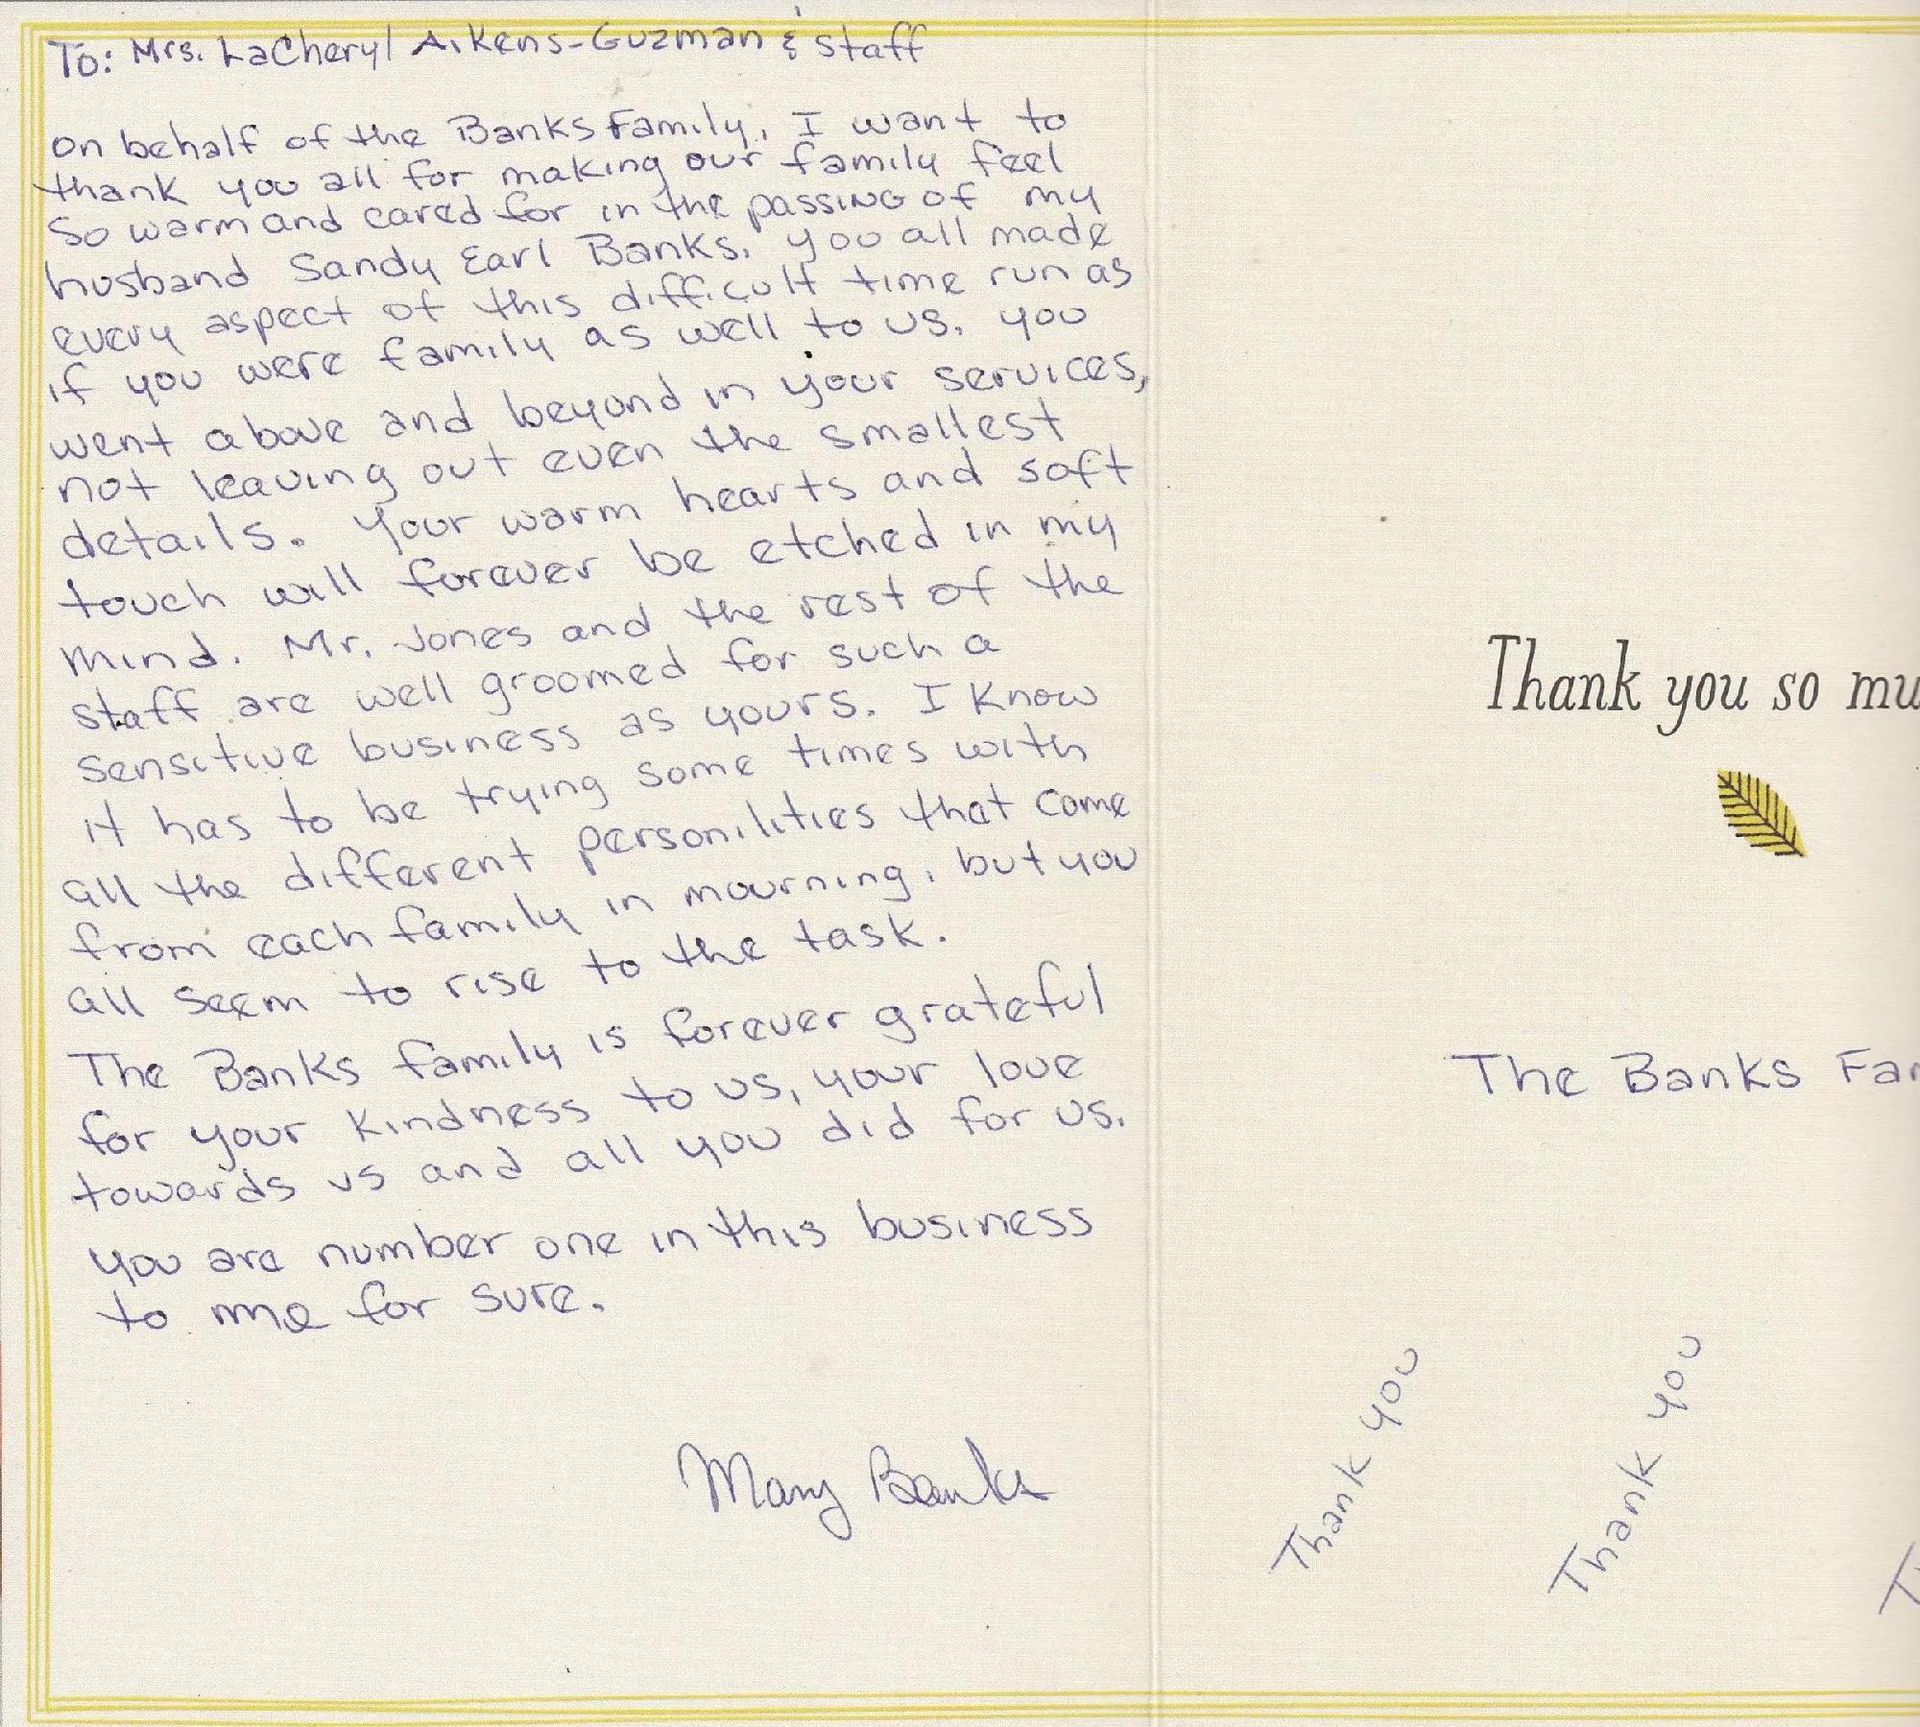 To: Mrs. LaCheryl Aikens-Guzman & staff
on behalf of the Banks Family, I want to
thank you all for making our family feel
so warm and cared for in the passing of my
husband Sandy Earl Banks. you all made
every aspect of this difficult time run as
if you were family as well to us. you
went above and beyond in your services,
not leaving out even the smallest
details. Your warm hearts and soft
touch will forever be etched in my
mind. Mr. Jones and the rest of the
staff are well groomed for such a
sensitive business as yours. I know
it has to be trying some times with
all the different personilities that come
from each family in mourning, but you
all seem to rise to the task.
The Banks family is forever grateful
for your kindness to us, your love
towards us and all you did for us.
you are number one in this business
to me for sure.
Mary Banks
Thank you so mu
The Banks Fam
Thank you
Thank you
T